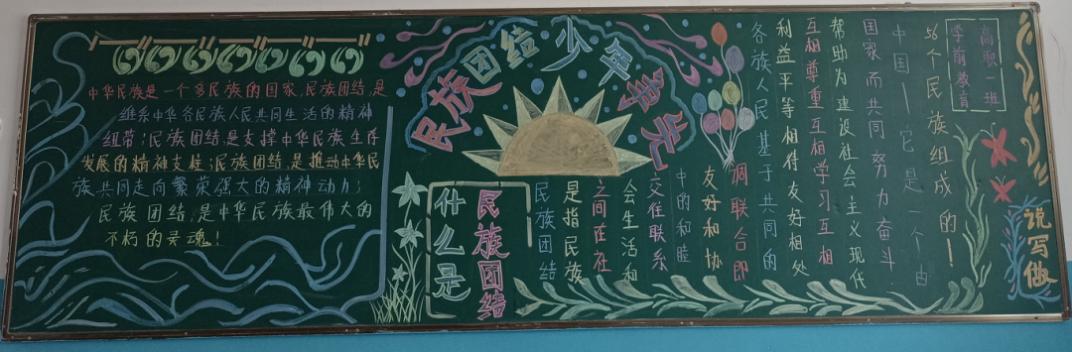 中华民族是一个多民族的国家,民族团结,是
维系中华各民族人民共同生活的精神
纽带;民族团结是支撑中华民族生存
发展的精神支柱;民族团结,是推动中华民
族共同走向繁荣强大的精神动力;
民族团结,是中华民族最伟大的
不朽的灵魂!
民族团结少年争先
什么是
民族团结
民族团结
是指民族
之间在社
会生活和
交往联系
中的和睦
友好和协
调联合即
各族人民基于共同的
利益平等相待友好相处
互相尊重互相学习互相
帮助为建设社会主义现代
国家而共同努力奋斗
中国—它是一个由
56个民族组成的—
学前教育
高职一班
说写做